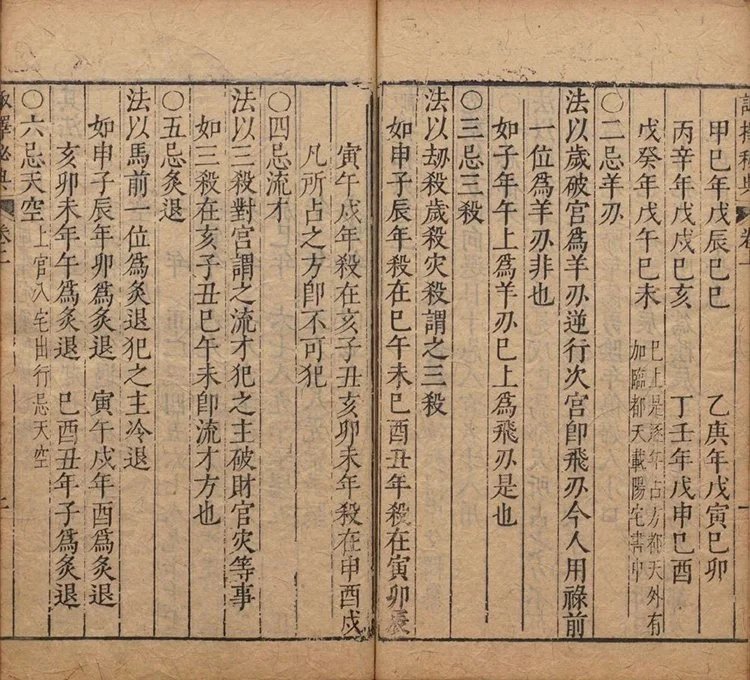 甲巳年戊辰巳巳　乙庚年戊寅巳卯
丙辛年戊戌巳亥　丁壬年戊申巳酉
戊癸年戊午巳未　巳上是逐年占方都天外有
加臨都天載陽宅書中
〇二忌羊刃
法以歲破宫爲羊刃逆行次宫卽飛刃今人用祿前
一位爲羊刃非也
如子年午上爲羊刃巳上爲飛刃是也
〇三忌三殺
法以劫殺歲殺灾殺謂之三殺
如申子辰年殺在巳午未巳酉丑年殺在寅卯辰
寅午戌年殺在亥子丑亥卯未年殺在申酉戌
凡所占之方卽不可犯
〇四忌流才
法以三殺對宫謂之流才犯之主破財官灾等事
如三殺在亥子丑巳午未卽流才方也
〇五忌灸退
法以馬前一位爲灸退犯之主冷退
如申子辰年卯爲灸退　寅午戌年酉爲灸退
亥卯未年午爲灸退　巳酉丑年子爲灸退
〇六忌天空　上官入宅出行忌天空